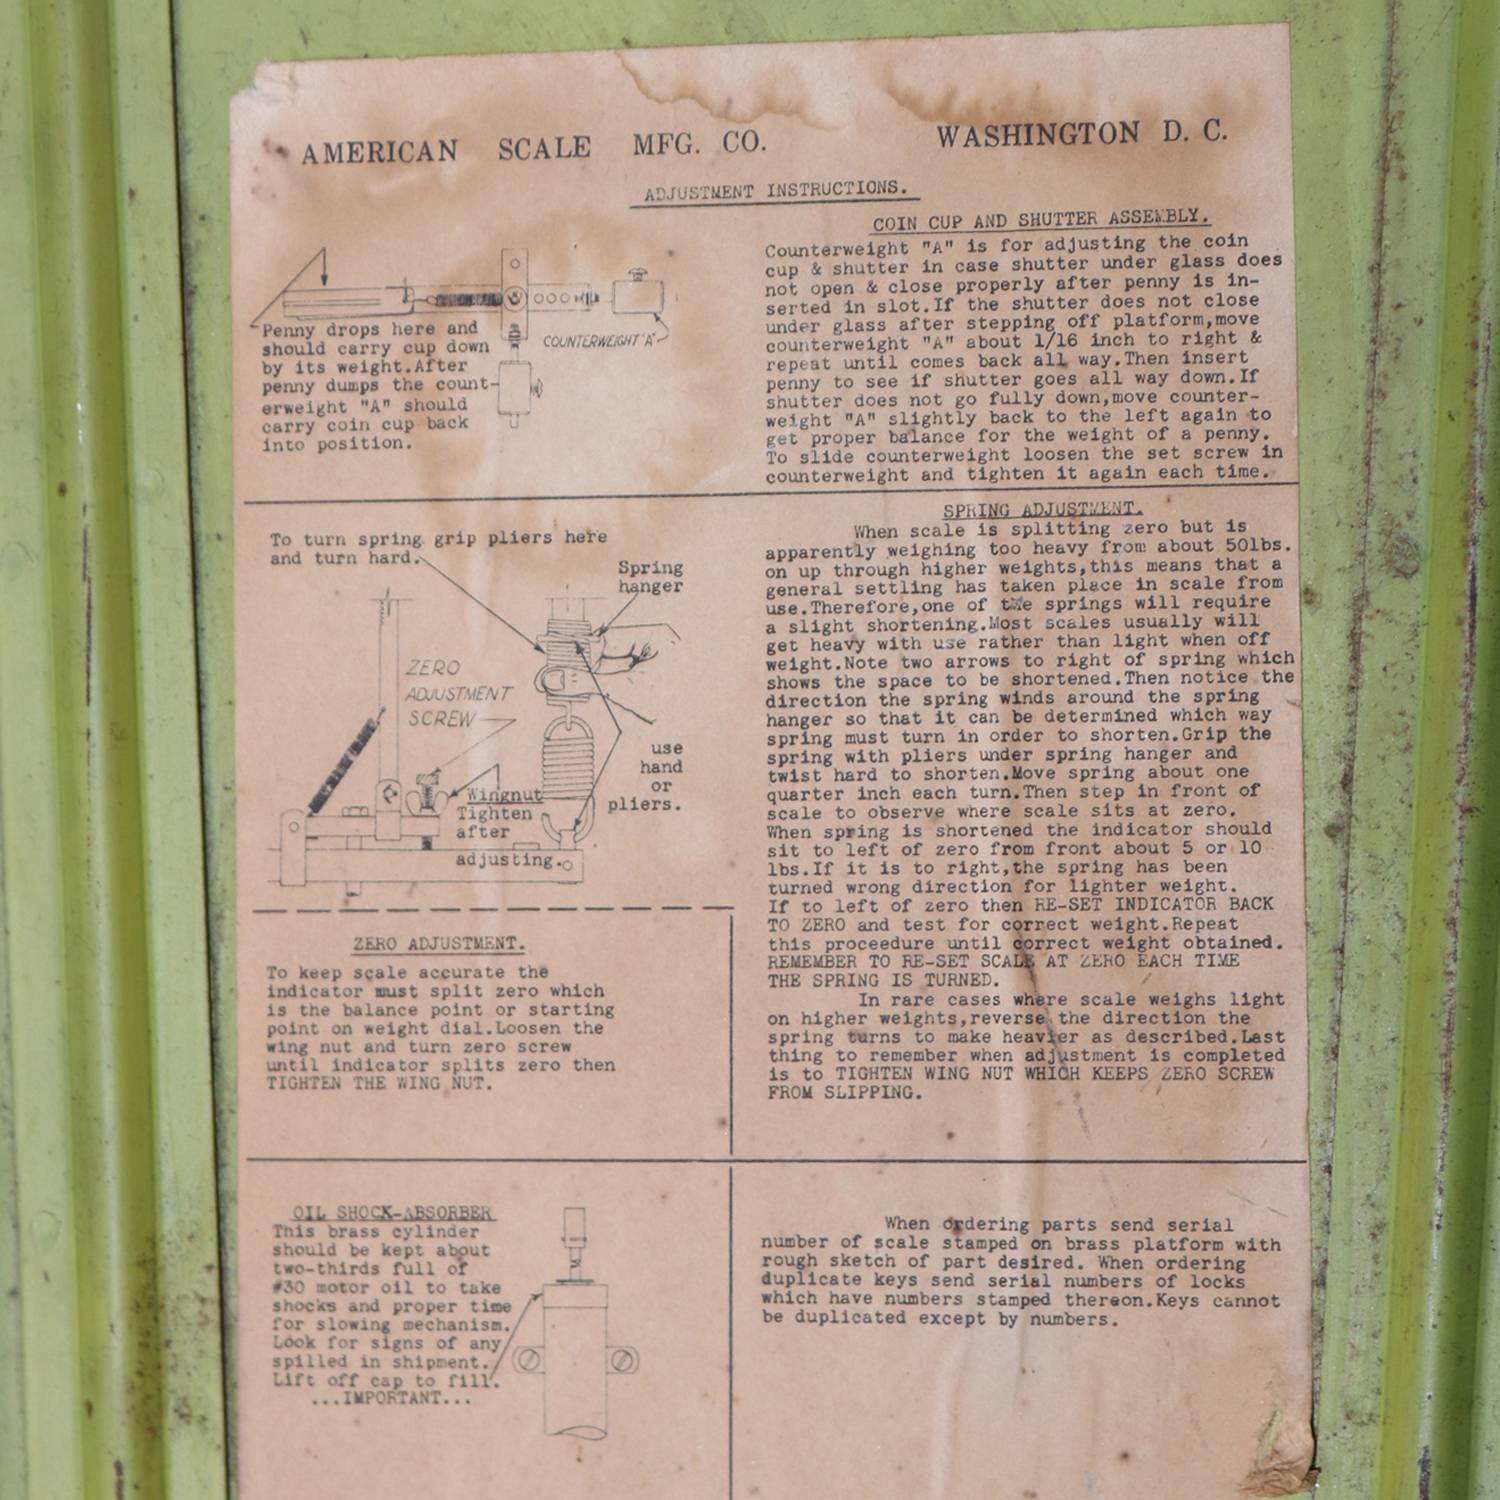 AMERICAN SCALE MFG. CO. WASHINGTON D. C.
ADJUSTMENT INSTRUCTIONS.
COIN CUP AND SHUTTER ASSEMBLY.
Counterweight "A" is for adjusting the coin
cup & shutter in case shutter under glass does
not open & close properly after penny is in-
serted in slot.If the shutter does not close
under glass after stepping off platform,move
counterweight "A" about 1/16 inch to right &
repeat until comes back all way.Then insert
penny to see if shutter goes all way down.If
shutter does not go fully down,move counter-
weight "A" slightly back to the left again to
get proper balance for the weight of a penny.
To slide counterweight loosen the set screw in
counterweight and tighten it again each time.
COUNTERWEIGHT "A"
Penny drops here and
should carry cup down
by its weight.After
penny dumps the count-
erweight "A" should
carry coin cup back
into position.
To turn spring grip pliers here
and turn hard.
Spring
hanger
ZERO
ADJUSTMENT
SCREW
use
hand
or
pliers.
Wingnut
Tighten
after
adjusting.
SPRING ADJUSTMENT.
When scale is splitting zero but is
apparently weighing too heavy from about 50lbs.
on up through higher weights,this means that a
general settling has taken place in scale from
use.Therefore,one of the springs will require
a slight shortening.Most scales usually will
get heavy with use rather than light when off
weight.Note two arrows to right of spring which
shows the space to be shortened.Then notice the
direction the spring winds around the spring
hanger so that it can be determined which way
spring must turn in order to shorten.Grip the
spring with pliers under spring hanger and
twist hard to shorten.Move spring about one
quarter inch each turn.Then step in front of
scale to observe where scale sits at zero.
When spring is shortened the indicator should
sit to left of zero from front about 5 or 10
lbs.If it is to right,the spring has been
turned wrong direction for lighter weight.
If to left of zero then RE-SET INDICATOR BACK
TO ZERO and test for correct weight.Repeat
this proceedure until correct weight obtained.
REMEMBER TO RE-SET SCALE AT ZERO EACH TIME
THE SPRING IS TURNED.
In rare cases where scale weighs light
on higher weights,reverse the direction the
spring turns to make heavier as described.Last
thing to remember when adjustment is completed
is to TIGHTEN WING NUT WHICH KEEPS ZERO SCREW
FROM SLIPPING.
ZERO ADJUSTMENT.
To keep scale accurate the
indicator must split zero which
is the balance point or starting
point on weight dial.Loosen the
wing nut and turn zero screw
until indicator splits zero then
TIGHTEN THE WING NUT.
OIL SHOCK-ABSORBER
This brass cylinder
should be kept about
two-thirds full of
#30 motor oil to take
shocks and proper time
for slowing mechanism.
Look for signs of any
spilled in shipment.
Lift off cap to fill.
...IMPORTANT...
When ordering parts send serial
number of scale stamped on brass platform with
rough sketch of part desired. When ordering
duplicate keys send serial numbers of locks
which have numbers stamped thereon.Keys cannot
be duplicated except by numbers.